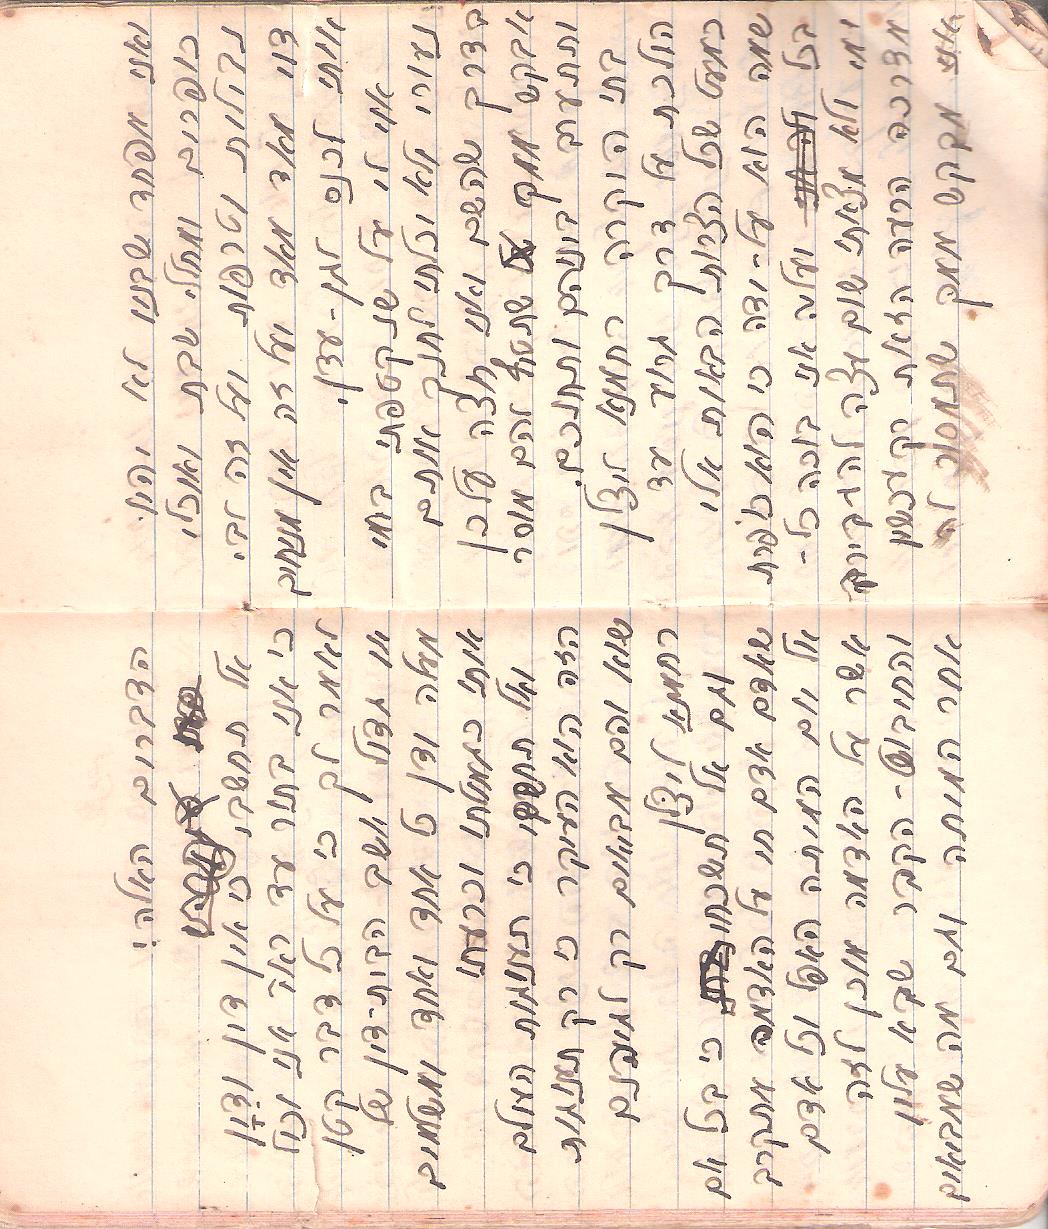 ואני מפחד שבניו לא יהיו
כופרים ומחללי שבת ואוכלי
נבילות וטרפות ועל זה לבי
דוי מאד מאד ועל זה אין מניחים
אותי לכנס לגן-עדן.
אוי לי על שנקטפתי בימי
נעורי ולא יכלתי לחנך אותם
בדרך שהשם ואני חוצה על כן
אבקש ממך שתטיף להם מוסר
ותתערב ביניהם ותחנכם.
בתי היקרה רחמנא ליצלן
הולכת על דרך גרוע עד
כמעט שכל הצרות הבאות אלי
שמה הוא על-ידה כי היא כופרת
בכל ועליה אני בוכה כל-
ימי ולא מצאתי שום עצה להדבירה
מדרכה הרעה הזאת רק עכשיו
אני מבקש ממך שתמסור לה
הדברים האלה:
אל תחשבי כי אין דין ודַיָן
כי אני בתור עד ראי' אני יכול
לאומר לך כי על כל דבר קטן
או גדול יושב הבית-דין של
מעלה ודן כל אחד ואחד ומשלמים
אותי כגמולתי וכרעתי
ואל תחשבי כי תענוגות העולם
הזה הוא העיקר כי רק תענוגות
שוא והם מביאים רק לגיהנם
רחמנא ליצלן
וגם אל תשכחי כי בכל אם
שאדם אדם חי על האדמה מתקרב
אל יום המיתה האפל וכל אדם
אשר על האדמה מוכן לזה
והחיבוט-הקבר שבא עליו
אחר המיתה וגם מה שמביאים